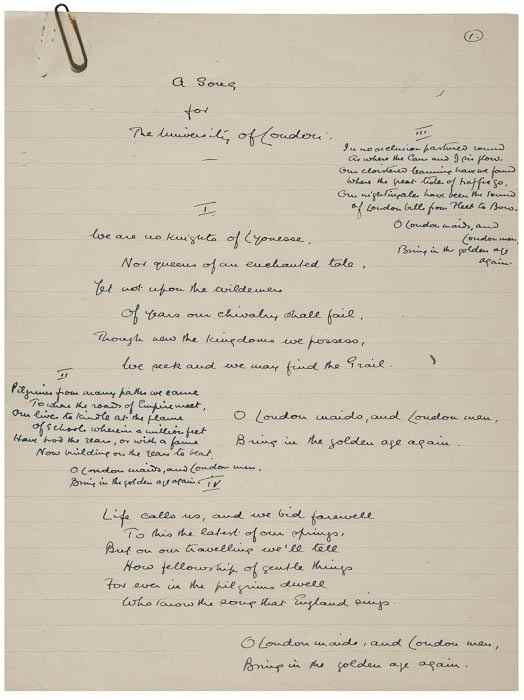 1.
A Song
for
The University of London.
III
In no seclusion pastured round
As where the Cam and Isis flow
Our cloistered learning have we found
Where the great tides of traffic go,
Our nightingales have been the sound
Of London bells from Fleet to Bow.
O London maids, and
London men,
Bring in the golden age
again.
I
We are no Knights of Lyonesse,
Nor queens of an enchanted tale,
Yet not upon the wilderness
Of years our chivalry shall fail,
Though new the kingdoms we possess,
We seek and we may find the Grail.
O London maids, and London men,
Bring in the golden age again.
II
Pilgrims from many paths we came
To where the roads of Empire meet,
Our lives to kindle at the flame
Of schools wherein a million feet
Have trod the years, or with a fame
Now building on the years to beat.
O London maids, and London men,
Bring in the golden age again.
IV
Life calls us, and we bid farewell
To this the latest of our springs,
But on our travelling we'll tell
How fellowship of gentle things
For ever in the pilgrims dwell
Who know the song that England sings.
O London maids, and London men,
Bring in the golden age again.